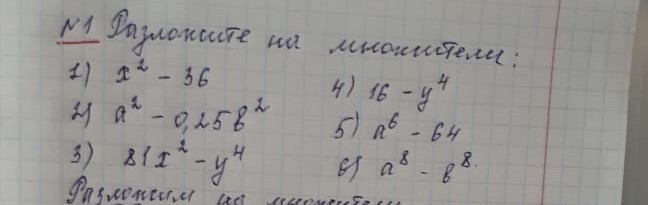 №1 Разложите на множители:
1) x² - 36
2) a² - 0,25b²
3) 81x² - y⁴
4) 16 - y⁴
5) a⁶ - 64
6) a⁸ - b⁸.
Разложим на множители